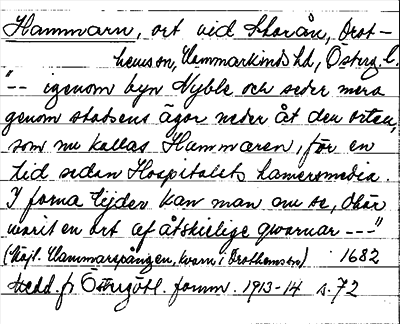 Hammarn, ort vid Storån, Drot-
hemson, Hammarkinds hd, Österg. l.
"-- igenom byn Nyble och seder mera
genom stadsens ägor neder åt den orten,
som nu kallas Hammaren, för en
tid sedan Hospitalets hamersmedia
I forna tijder kan man nu se, dhär
warit en ort af åtskielige qwarnar ---"
(Möjl. Hammarspången, kvarn i Drothemson) 1682
Medd. fr Östergötl. fornm. 1913-14 s. 72